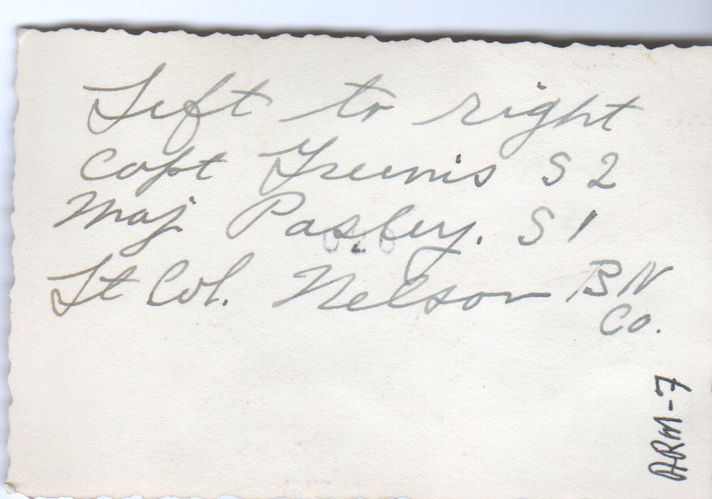 Left to right
Capt S2
Maj Pasley. S1
Lt Col. Nelson BN
Co.
ARM-7